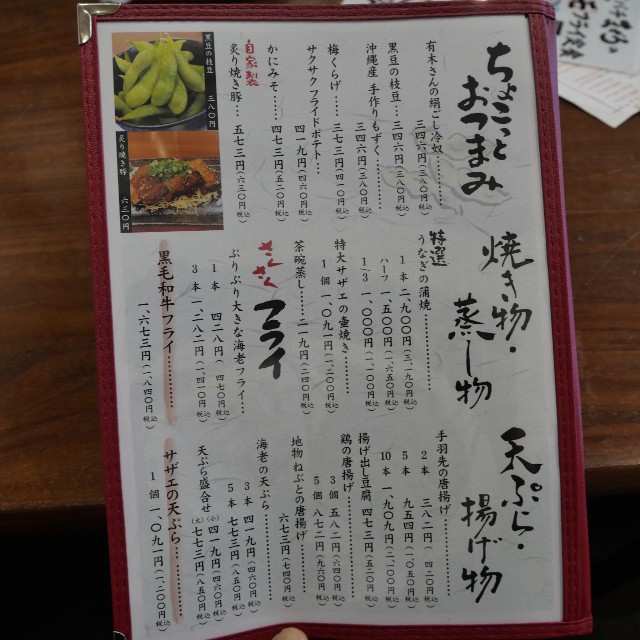 ちょこっと
おつまみ
有木さんの絹ごし冷奴…………
三四六円(三八〇円税込)
黒豆の枝豆…三四六円(三八〇円税込)
沖縄産 手作りもずく…………
三四六円(三八〇円税込)
梅くらげ……三七三円(四一〇円税込)
サクサクフライドポテト…
四一九円(四六〇円税込)
かにみそ……四七三円(五二〇円税込)
自家製
炙り焼き豚…五七三円(六三〇円税込)
黒豆の枝豆 三八〇円
炙り焼き豚 六三〇円
焼き物・
蒸し物
特選
うなぎの蒲焼…………
1本 二、九〇〇円(三、一九〇円税込)
ハーフ 一、五〇〇円(一、六五〇円税込)
1/3 一、〇〇〇円(一、一〇〇円税込)
特大サザエの壷焼き…………
1個 一、〇九一円(一、二〇〇円税込)
茶碗蒸し……二一九円(二四〇円税込)
さんさん
フライ
ぷりぷり大きな海老フライ…
1本 四二八円(四七〇円税込)
3本 一、二八二円(一、四一〇円税込)
黒毛和牛フライ…………
一、六七三円(一、八四〇円税込)
天ぷら・
揚げ物
手羽先の唐揚げ…………
2本 三八二円(四二〇円税込)
5本 九五四円(一、〇五〇円税込)
10本 一、九〇九円(二、一〇〇円税込)
揚げ出し豆腐 四七三円(五二〇円税込)
鶏の唐揚げ…………
3個 五八二円(六四〇円税込)
5個 八七二円(九六〇円税込)
地物ねぶとの唐揚げ…………
六七三円(七四〇円税込)
海老の天ぷら…………
3本 四一九円(四六〇円税込)
5本 七七三円(八五〇円税込)
天ぷら盛合せ(小)四一九円(四六〇円税込)
(大)七七三円(八五〇円税込)
サザエの天ぷら…………
1個 一、〇九一円(一、二〇〇円税込)